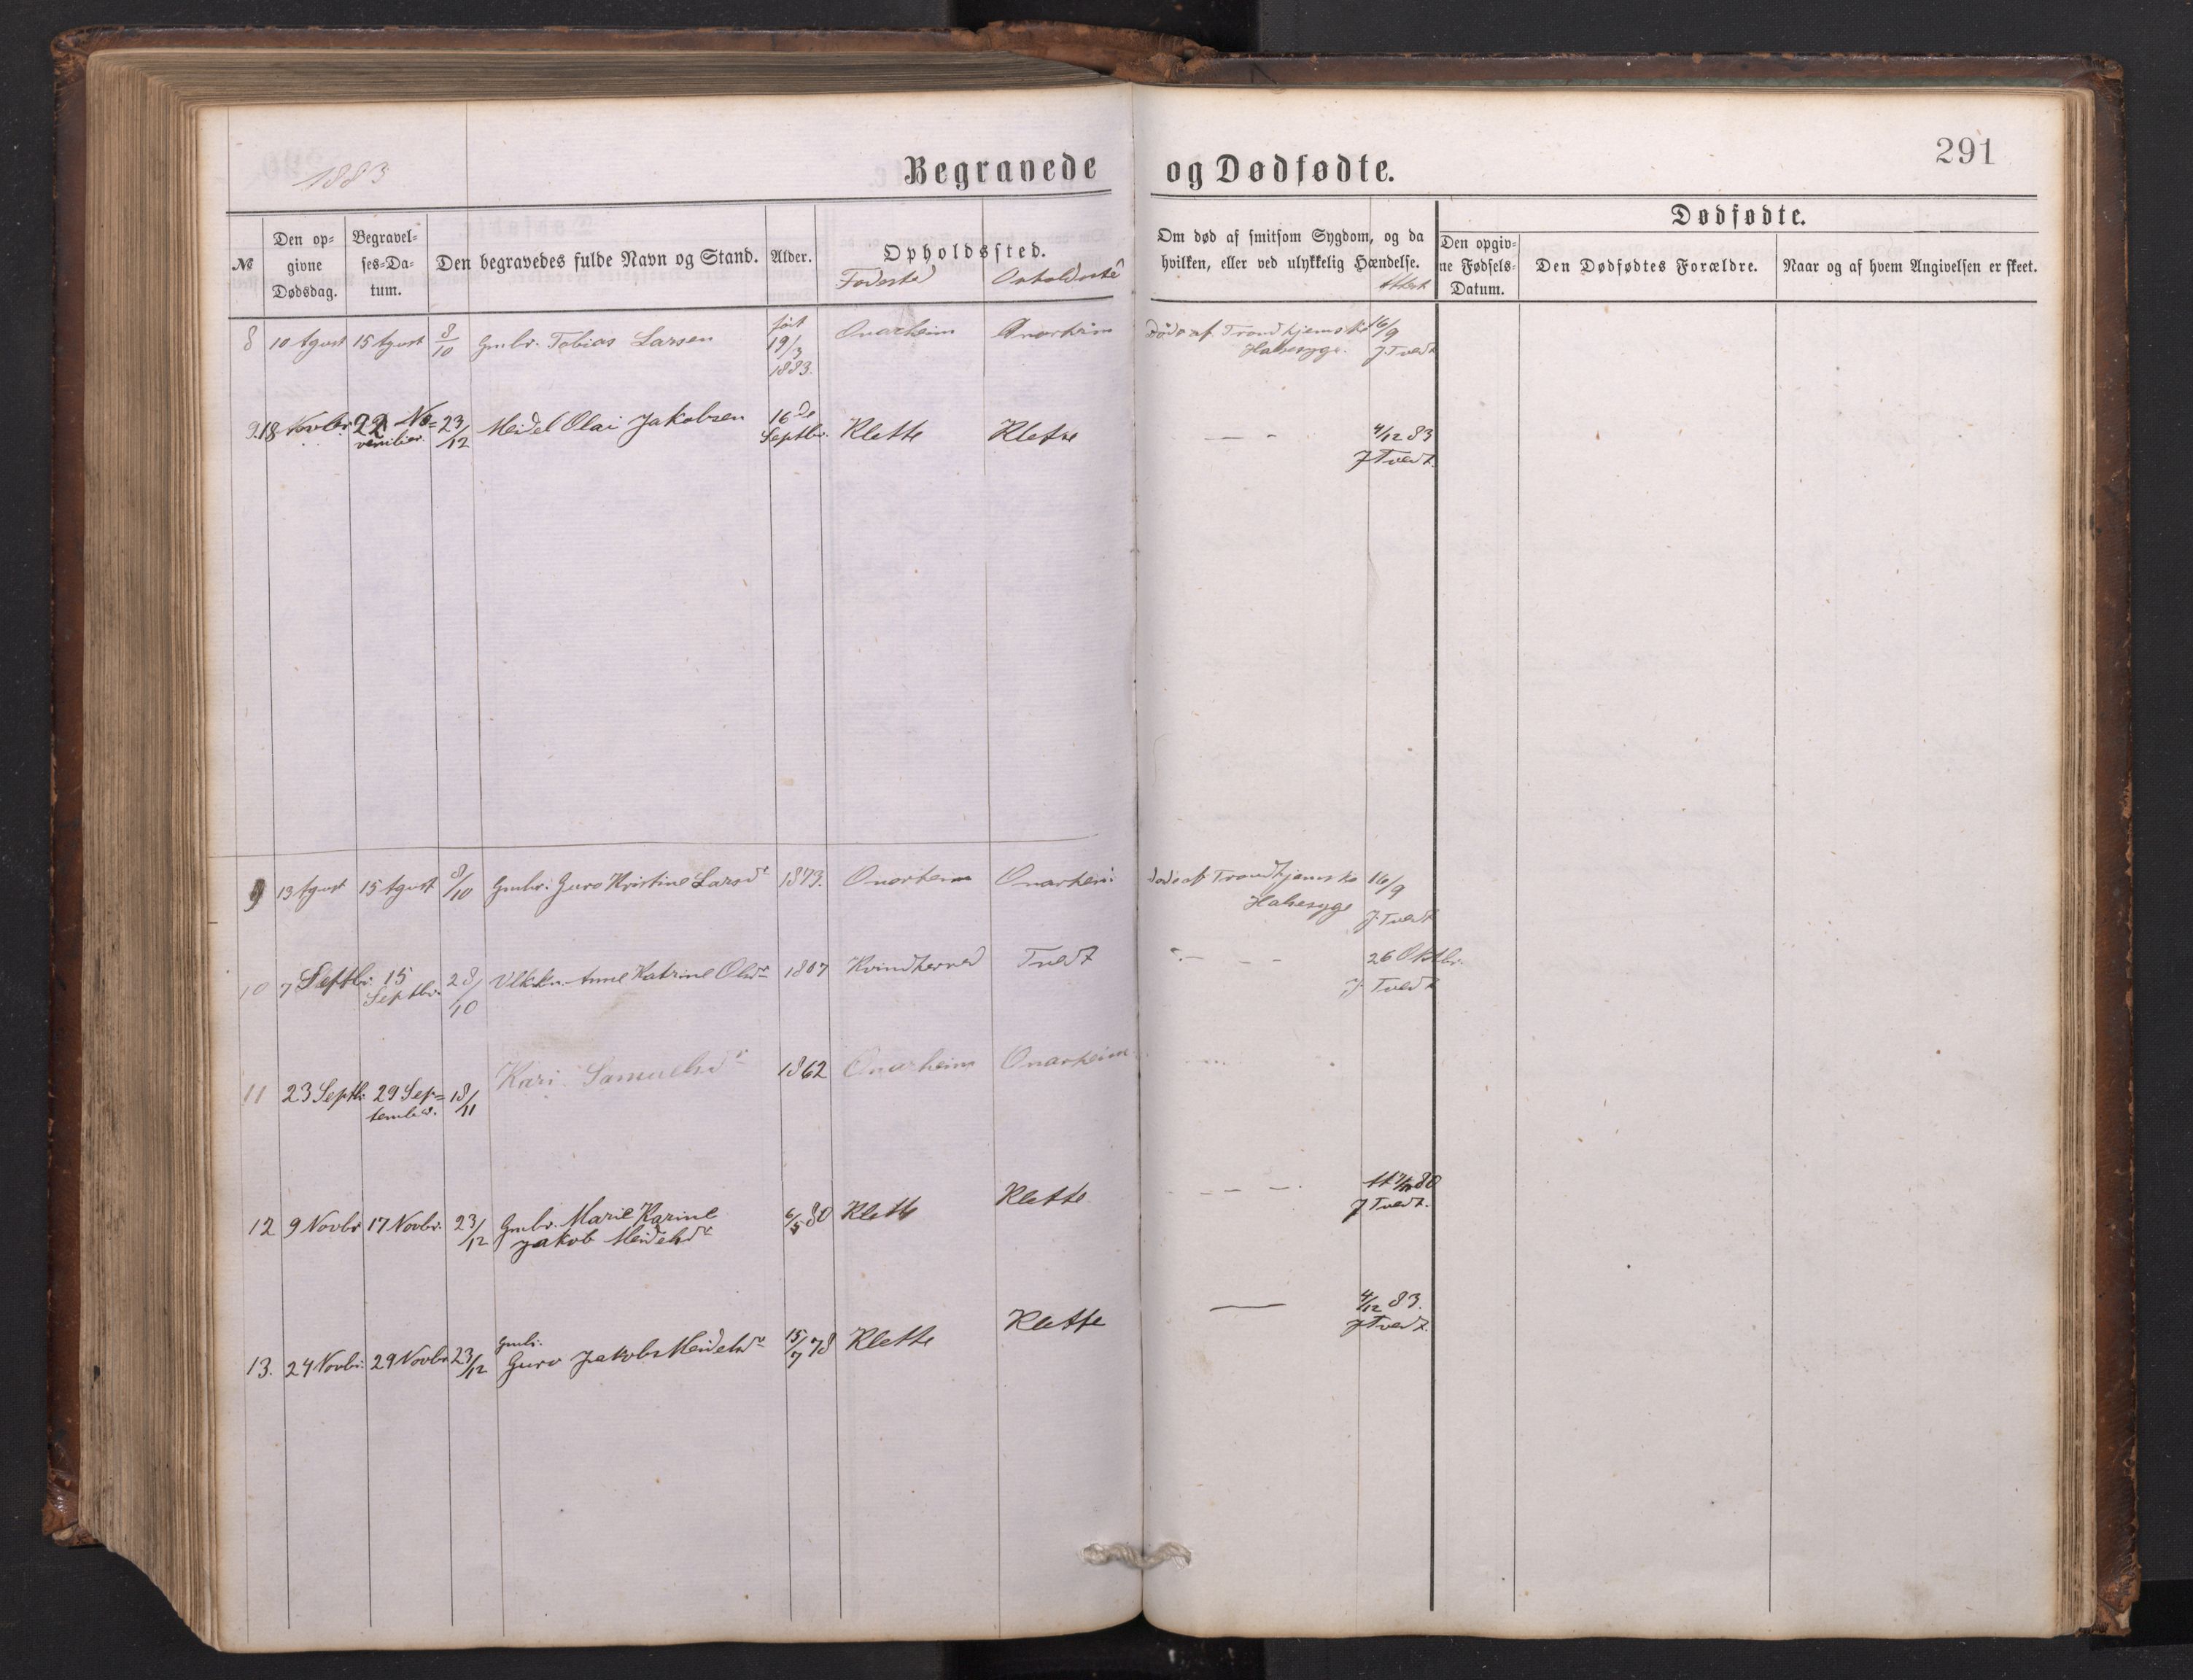 1883
Begravede og Dødfødte.
291
№
Den opgivne Dødsdag.
Begravelses-Datum.
Den begravedes fulde Navn og Stand.
Alder.
Opholdssted.
Fødested
Opholdssted
Om død af smitsom Sygdom, og da hvilken, eller ved ulykkelig Hændelse.
Attest
Dødfødte.
Den opgivne Fødsels-Datum.
Den Dødfødtes Forældre.
Naar og af hvem Angivelsen er skeet.
8 10 Agust 15 Agust 8/10 Gmbr. Tobias Larsen født 19/3 1883. Onarheim Onarheim Døde af Trondhjemske Halsesyge. 16/9 J. Tvedt
9. 18 Novbr. 22 November. 23/12 Meidel Olai Jakobsen 16de Septbr. Klette Klette — - 4/12 83 J Tvedt.
9 13 Agust 15 Agust 8/10 Gmbr. Guro Kristine Larsdr 1873. Onarheim Onarheim døde af Trondhjemske Halsesyge 16/9 J. Tvedt
10 7 Septbr. 15 Septbr. 28/10 Anne Katrine Olsdr 1807 Kvindherred Tvedt - - - 26 Oktbr. J. Tvedt
11 23 Septb. 29 September. 18/11 Kari Samuelsdr 1862 Onarheim Onarheim
12 9 Novbr 17 Novbr. 23/12 Gmbr. Marie Karine Jakob Meidelsdr 6/5 80 Klette Klette - - - J Tvedt.
13. 24 Novbr. 29 Novbr 23/12 Gmbr. Guro Jakobs Meidelsdr 15/7 78 Klette Klette — 4/12 83. J Tvedt.